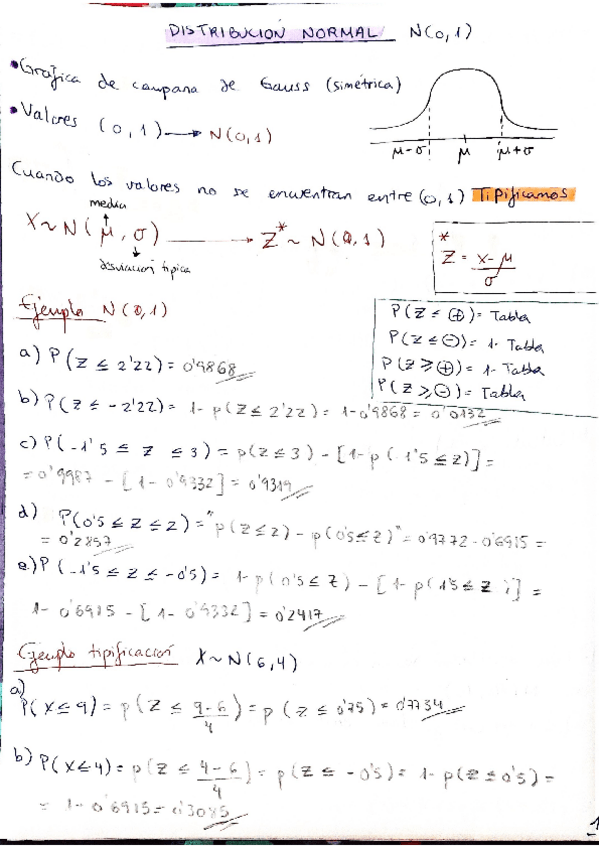 DISTRIBUCIÓN NORMAL N(0,1)
• Gráfica de campana de Gauss (simétrica)
• Valores (0,1) → N(0,1)
μ-σ μ μ+σ
Cuando los valores no se encuentran entre (0,1) Tipificamos
media
X ~ N(μ, σ) → Z* ~ N(0,1)
desviación típica
* Z = x-μ / σ
P(Z ≤ ⊕) = Tabla
P(Z ≤ ⊖) = 1- Tabla
P(Z ≥ ⊕) = 1- Tabla
P(Z ≥ ⊖) = Tabla
Ejemplo N(0,1)
a) P(Z ≤ 2'22) = 0'9868
b) P(Z ≤ -2'22) = 1- p(Z ≤ 2'22) = 1-0'9868 = 0'0132
c) P(-1'5 ≤ Z ≤ 3) = p(Z ≤ 3) - [1-p(1'5 ≤ Z)] =
= 0'9987 - [1- 0'9332] = 0'9319
d) P(0'5 ≤ Z ≤ 2) = "p(Z ≤ 2) - p(0'5 ≤ Z)" = 0'9772 - 0'6915 =
= 0'2857
e) P(-1'5 ≤ Z ≤ -0'5) = 1- p(0'5 ≤ Z) - [1- p(1'5 ≤ Z)] =
1- 0'6915 - [1- 0'9332] = 0'2417
Ejemplo tipificación X ~ N(6,4)
a)
P(X ≤ 9) = p(Z ≤ 9-6 / 4) = p(Z ≤ 0'75) = 0'7734
b) P(X ≤ 4) = p(Z ≤ 4-6 / 4) = p(Z ≤ -0'5) = 1- p(Z ≤ 0'5) =
= 1- 0'6915 = 0'3085
1